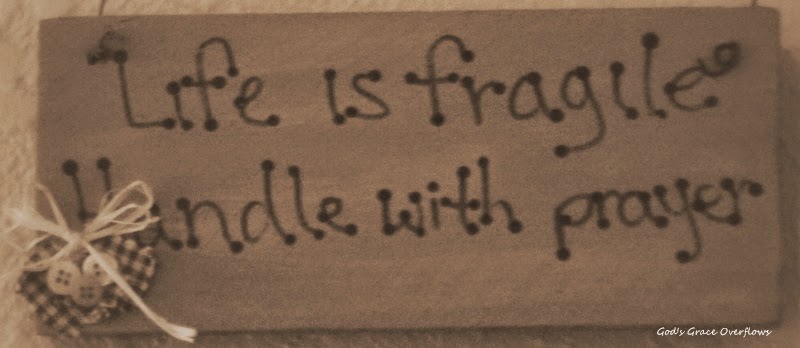 Life is fragile
Handle with prayer
God's Grace Overflows